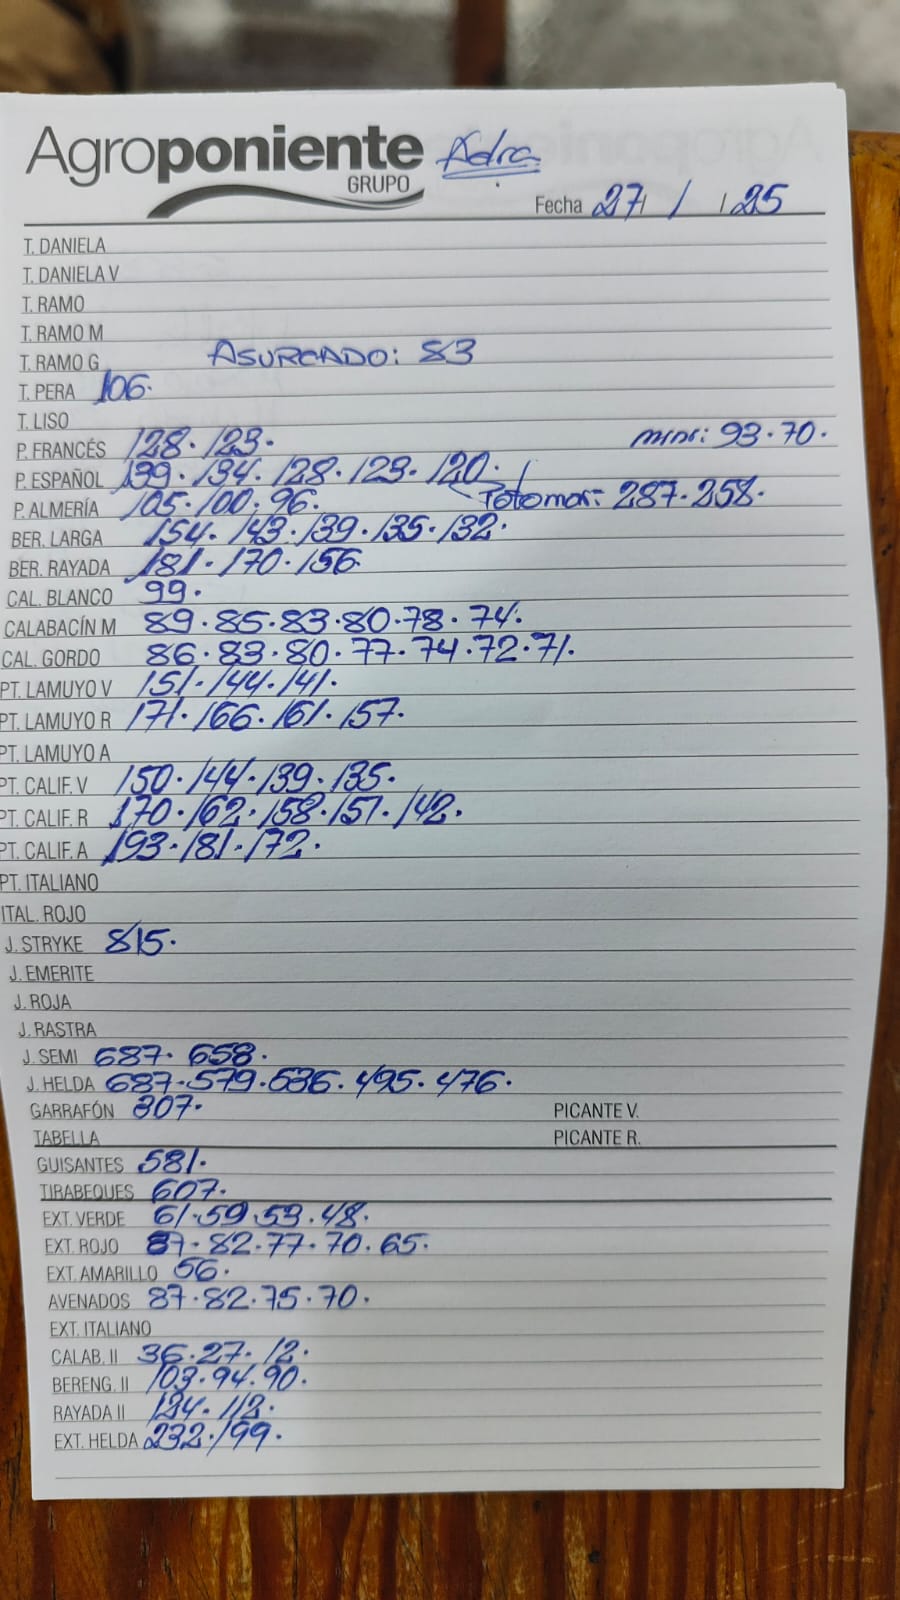 Agroponiente Adra
GRUPO
Fecha 27 / / 25
T. DANIELA
T. DANIELA V
T. RAMO
T. RAMO M
T. RAMO G ASURCADO: 83
T. PERA 106.
T. LISO
P. FRANCÉS 128. 123. mini: 93. 70.
P. ESPAÑOL 139. 134. 128. 123. 120.
P. ALMERÍA 105. 100. 96. Totomari: 287. 258.
BER. LARGA 154. 143. 139. 135. 132.
BER. RAYADA 181. 170. 156
CAL. BLANCO 99.
CALABACÍN M 89. 85. 83. 80. 78. 74.
CAL. GORDO 86. 83. 80. 77. 74. 72. 71.
PT. LAMUYO V 151. 144. 141.
PT. LAMUYO R 171. 166. 161. 157.
PT. LAMUYO A
PT. CALIF. V 150. 144. 139. 135.
PT. CALIF. R 170. 162. 158. 151. 142.
PT. CALIF. A 193. 181. 172.
PT. ITALIANO
ITAL. ROJO
J. STRYKE 815.
J. EMERITE
J. ROJA
J. RASTRA
J. SEMI 687. 658.
J. HELDA 687. 579. 536. 495. 476.
GARRAFÓN 307. PICANTE V.
TABELLA PICANTE R.
GUISANTES 581.
TIRABEQUES 607.
EXT. VERDE 61. 59. 53. 48.
EXT. ROJO 87. 82. 77. 70. 65.
EXT. AMARILLO 56.
AVENADOS 87. 82. 75. 70.
EXT. ITALIANO
CALAB. II 36. 27. 12.
BERENG. II 103. 94. 90.
RAYADA II 124. 112.
EXT. HELDA 232. 199.